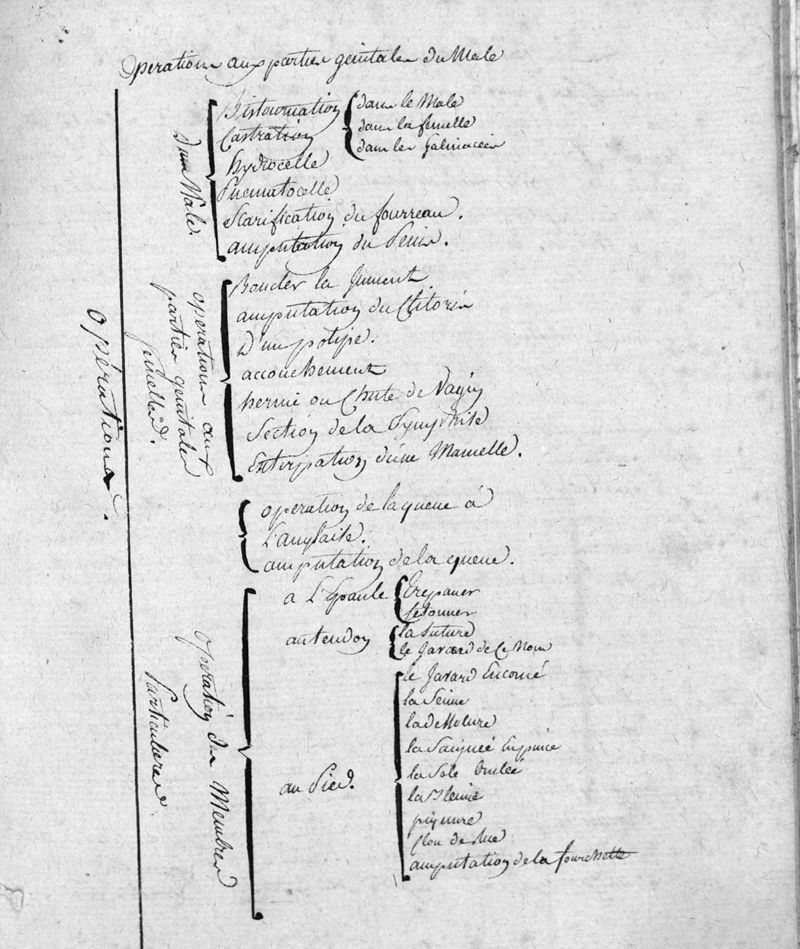 Operations aux parties genitales du Male
Opérations.
du Male.
Bistournation
Castration
dans le Male
dans la femelle
dans les Galinacées
hydrocelle
Pneumatocelle
Scarification du fourreau.
amputation du Penis.
operations aux
parties genitales
femelles.
Boucler la Jument
amputation du Clitoris
D'un polipe.
accouchement
hernie ou Chute de Vagin
Section de la Symphise
Extirpation d'une Mamelle.
operation de la queue à
L'anglaise.
amputation de la queue.
Operations des Membres
Particulieres
a L'Epaule
trepaner
Setonner
au tendon
la suture
le Javard de Ce Nom
au Pied.
le Javard Encorné
la Seime
la dessolure
la Saignée En pince
la Sole brulée
la Bleime
piqure
Clou de Rue
amputation de la fourchette